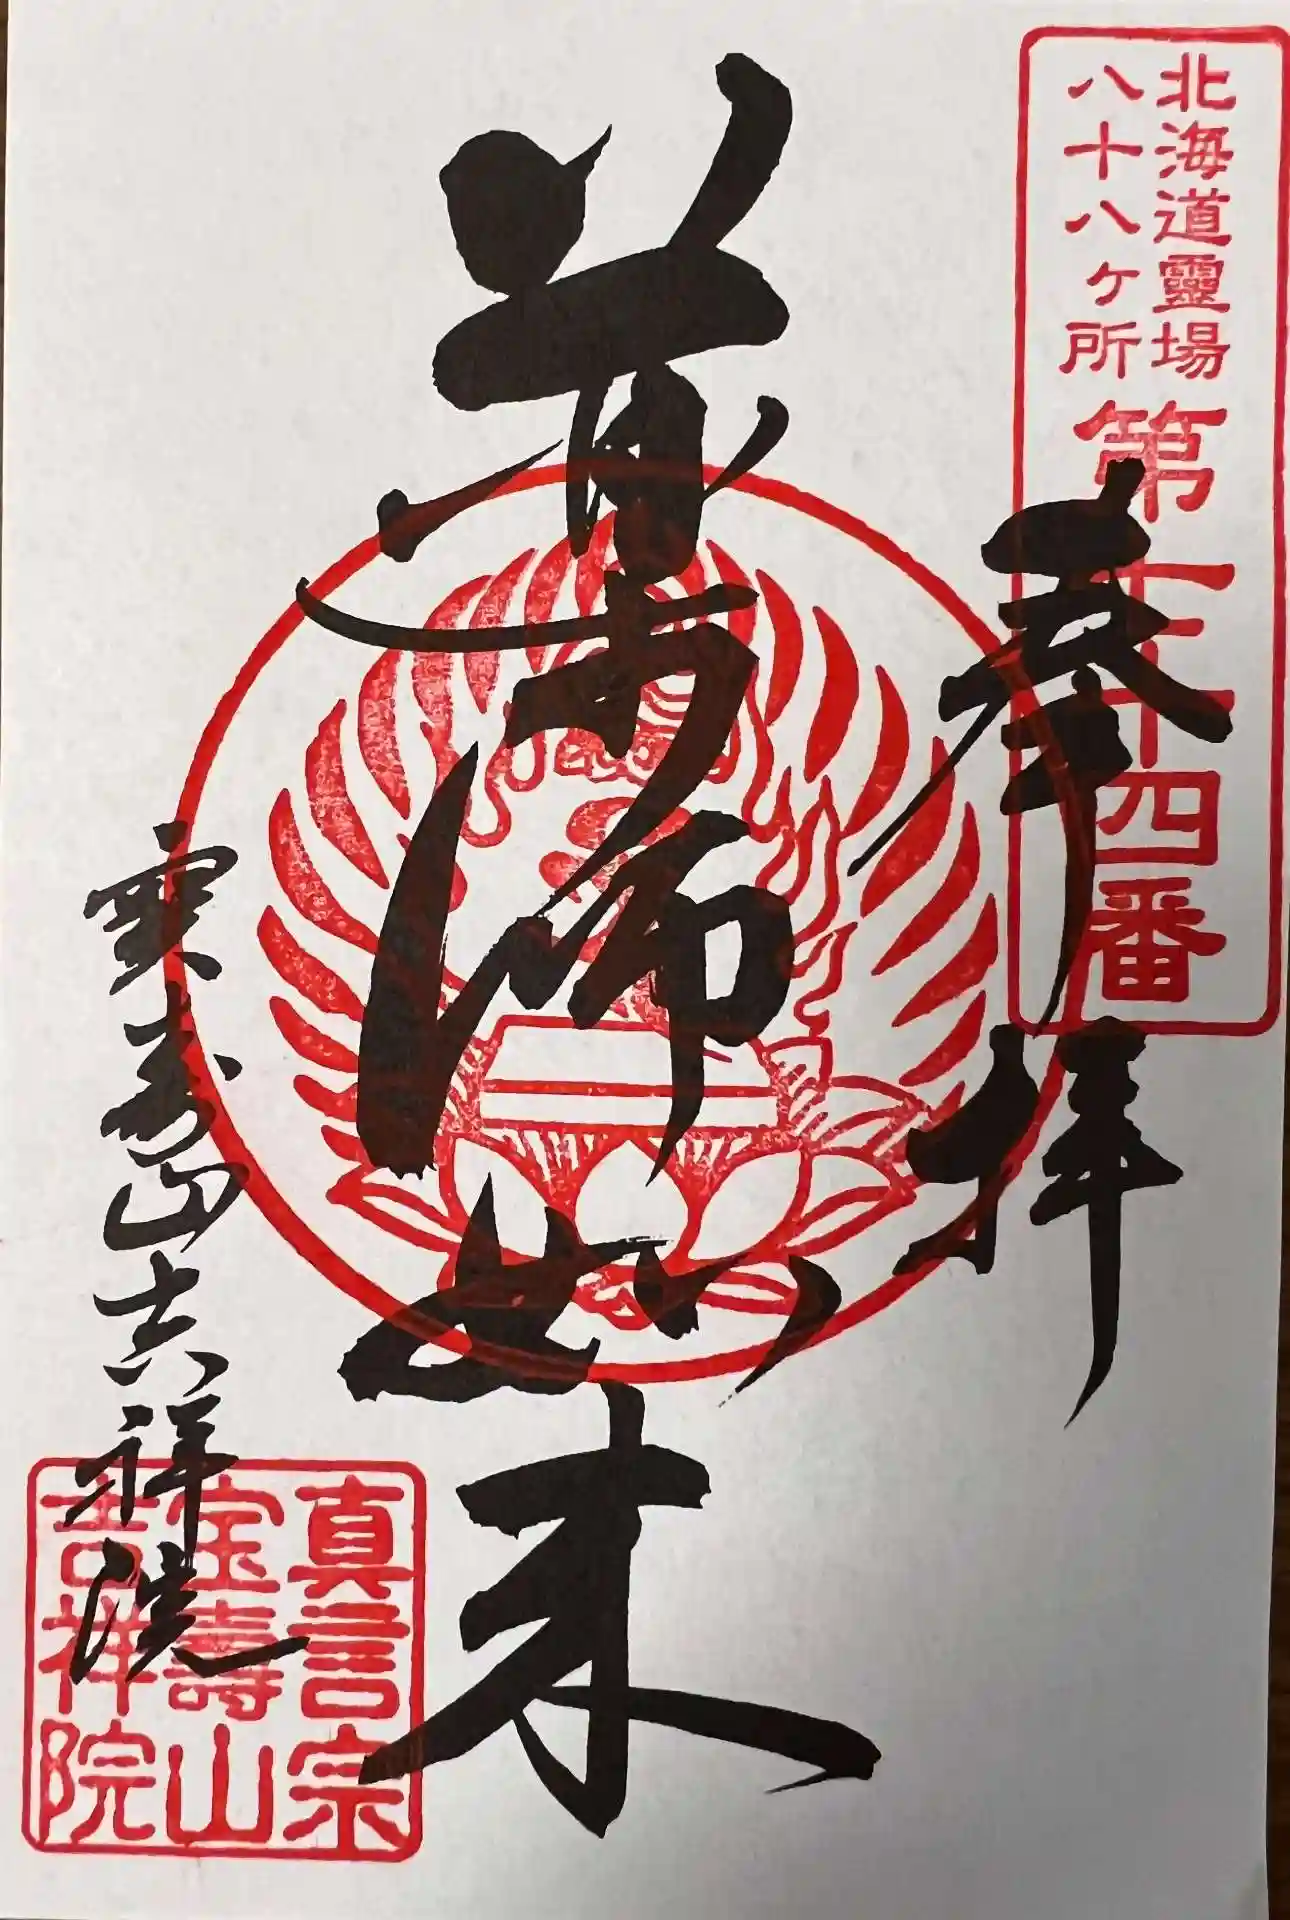 北海道靈場
八十八ヶ所
第二十四番
奉拝
薬師如来
宝寿山吉祥院
真言宗
宝壽山
吉祥院